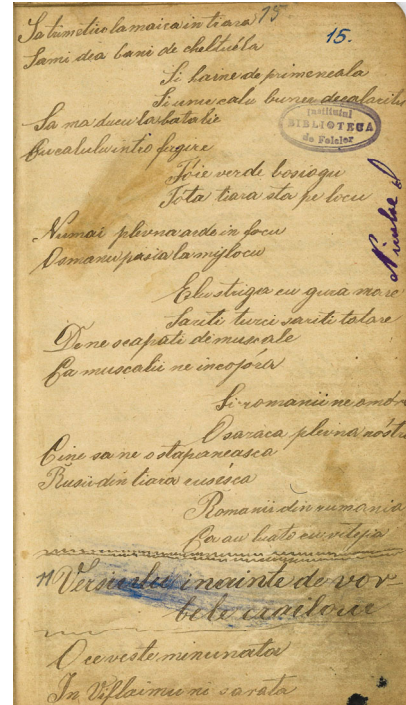 15
15.
Sa tumetiio la maica in tiara
Sami dea bani de cheltuéla
Si haine de primeneala
Si unu calu bunu decalacilu
Institutul
BIBLIOTECA
de Folclor
Sa ma ducu la batalie
Cu calulu intio fugere
Fóie verde bosiogu
Tóta tiara sta pe locu
Numai plevna arde in focu
Osmanu pasia la mijlocu
Elu striga cu gura mare
Sariti turci sariti tatare
De ne scapati de muscale
Ca muscalii ne incojóra
Si romanii ne omóra
O saraca plevna nóstra
Cine sa ne o stapaneasca
Rusii din tiara rusésca
Romanii din rumania
Ca au luato cu vitejia
11 Versulu inainte de vor
bele crailoru
O ce veste minunata
In Viflaimu ni sarata